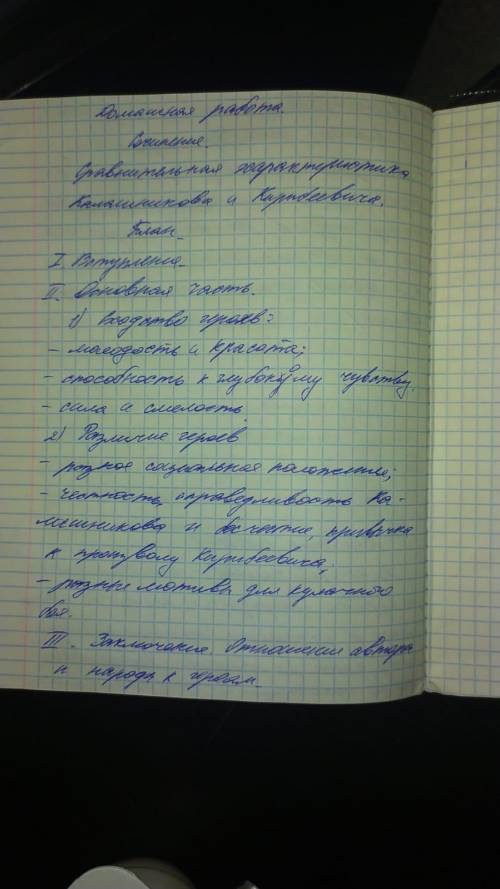 Домашная работа.
Сочинение.
Сравнительная характеристика
Калашникова и Кирибеевича.
План.
I. Вступление.
II. Основная часть.
1) Сходство героев:
- молодость и красота;
- способность к глубокому чувству;
- сила и смелость
2) Различие героев
- разное социальное положение;
- честность, справедливость Ка-
лашникова и бесчестие, привычка
к произволу Кирибеевича;
- разные мотивы для кулачного
боя.
III. Заключение. Отношение автора
и народа к героям.